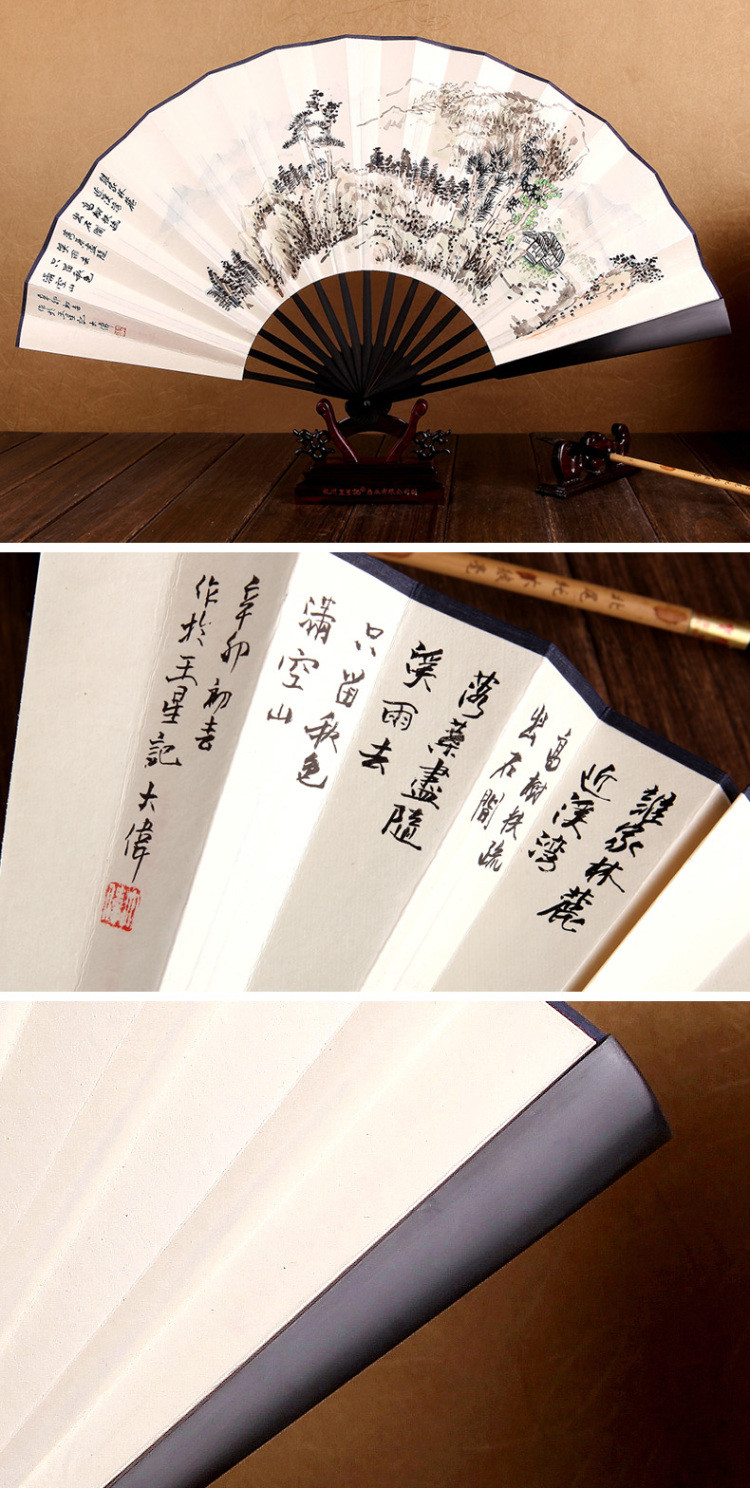 誰家林麓
近溪灣
高樹扶疏
出石間
落葉盡隨
溪雨去
只留秋色
滿空山
辛卯初
作於王星記大偉